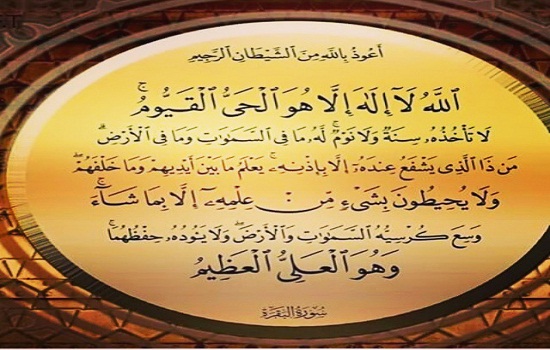 أَعُوذُ بِاللَّهِ مِنَ الشَّيْطَانِ الرَّجِيمِ
اللَّهُ لَآ إِلَٰهَ إِلَّا هُوَ الْحَىُّ الْقَيُّومُ ۚ
لَا تَأْخُذُهُۥ سِنَةٌ وَلَا نَوْمٌ ۚ لَّهُۥ مَا فِى السَّمَٰوَٰتِ وَمَا فِى الْأَرْضِ ۗ
مَن ذَا الَّذِى يَشْفَعُ عِندَهُۥٓ إِلَّا بِإِذْنِهِۦ ۚ يَعْلَمُ مَا بَيْنَ أَيْدِيهِمْ وَمَا خَلْفَهُمْ ۖ
وَلَا يُحِيطُونَ بِشَىْءٍ مِّنْ عِلْمِهِۦٓ إِلَّا بِمَا شَآءَ ۚ
وَسِعَ كُرْسِيُّهُ السَّمَٰوَٰتِ وَالْأَرْضَ ۖ وَلَا يَـُٔودُهُۥ حِفْظُهُمَا ۚ
وَهُوَ الْعَلِىُّ الْعَظِيمُ
سُورَةُ الْبَقَرَةِ